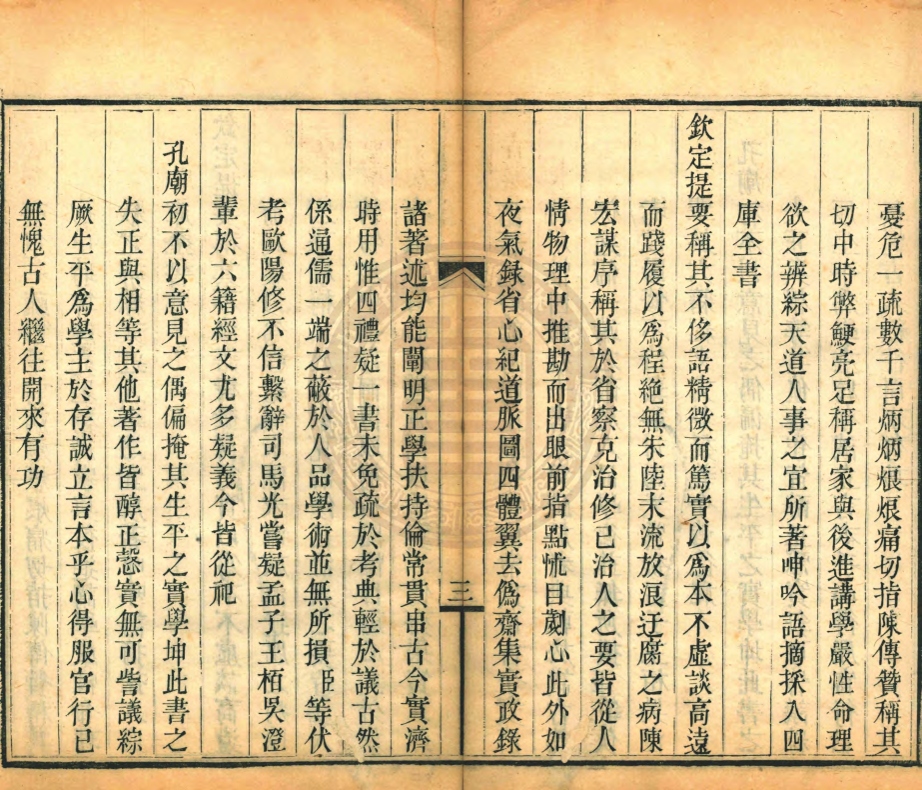 憂危一疏數千言炳炳烺烺痛切指陳傳贊稱其
切中時弊鯁亮足稱居家與後進講學嚴性命理
欲之辨綜天道人事之宜所著呻吟語摘採入四
庫全書
欽定提要稱其不侈語精微而篤實以為本不虛談高遠
而踐履以為程絕無朱陸末流放浪迂腐之病陳
宏謀序稱其於省察克治修己治人之要皆從人
情物理中推勘而出眼前指點怵目劌心此外如
夜氣錄省心紀道脈圖四體翼去偽齋集實政錄
三
諸著述均能闡明正學扶持倫常貫串古今實濟
時用惟四禮疑一書未免疏於考典輕於議古然
係通儒一端之蔽於人品學術並無所損臣等伏
考歐陽修不信繫辭司馬光嘗疑孟子王栢吳澄
輩於六籍經文尤多疑義今皆從祀
孔廟初不以意見之偶偏掩其生平之實學坤此書之
失正與相等其他著作皆醇正慤實無可訾議綜
厥生平為學主於存誠立言本乎心得服官行己
無愧古人繼往開來有功